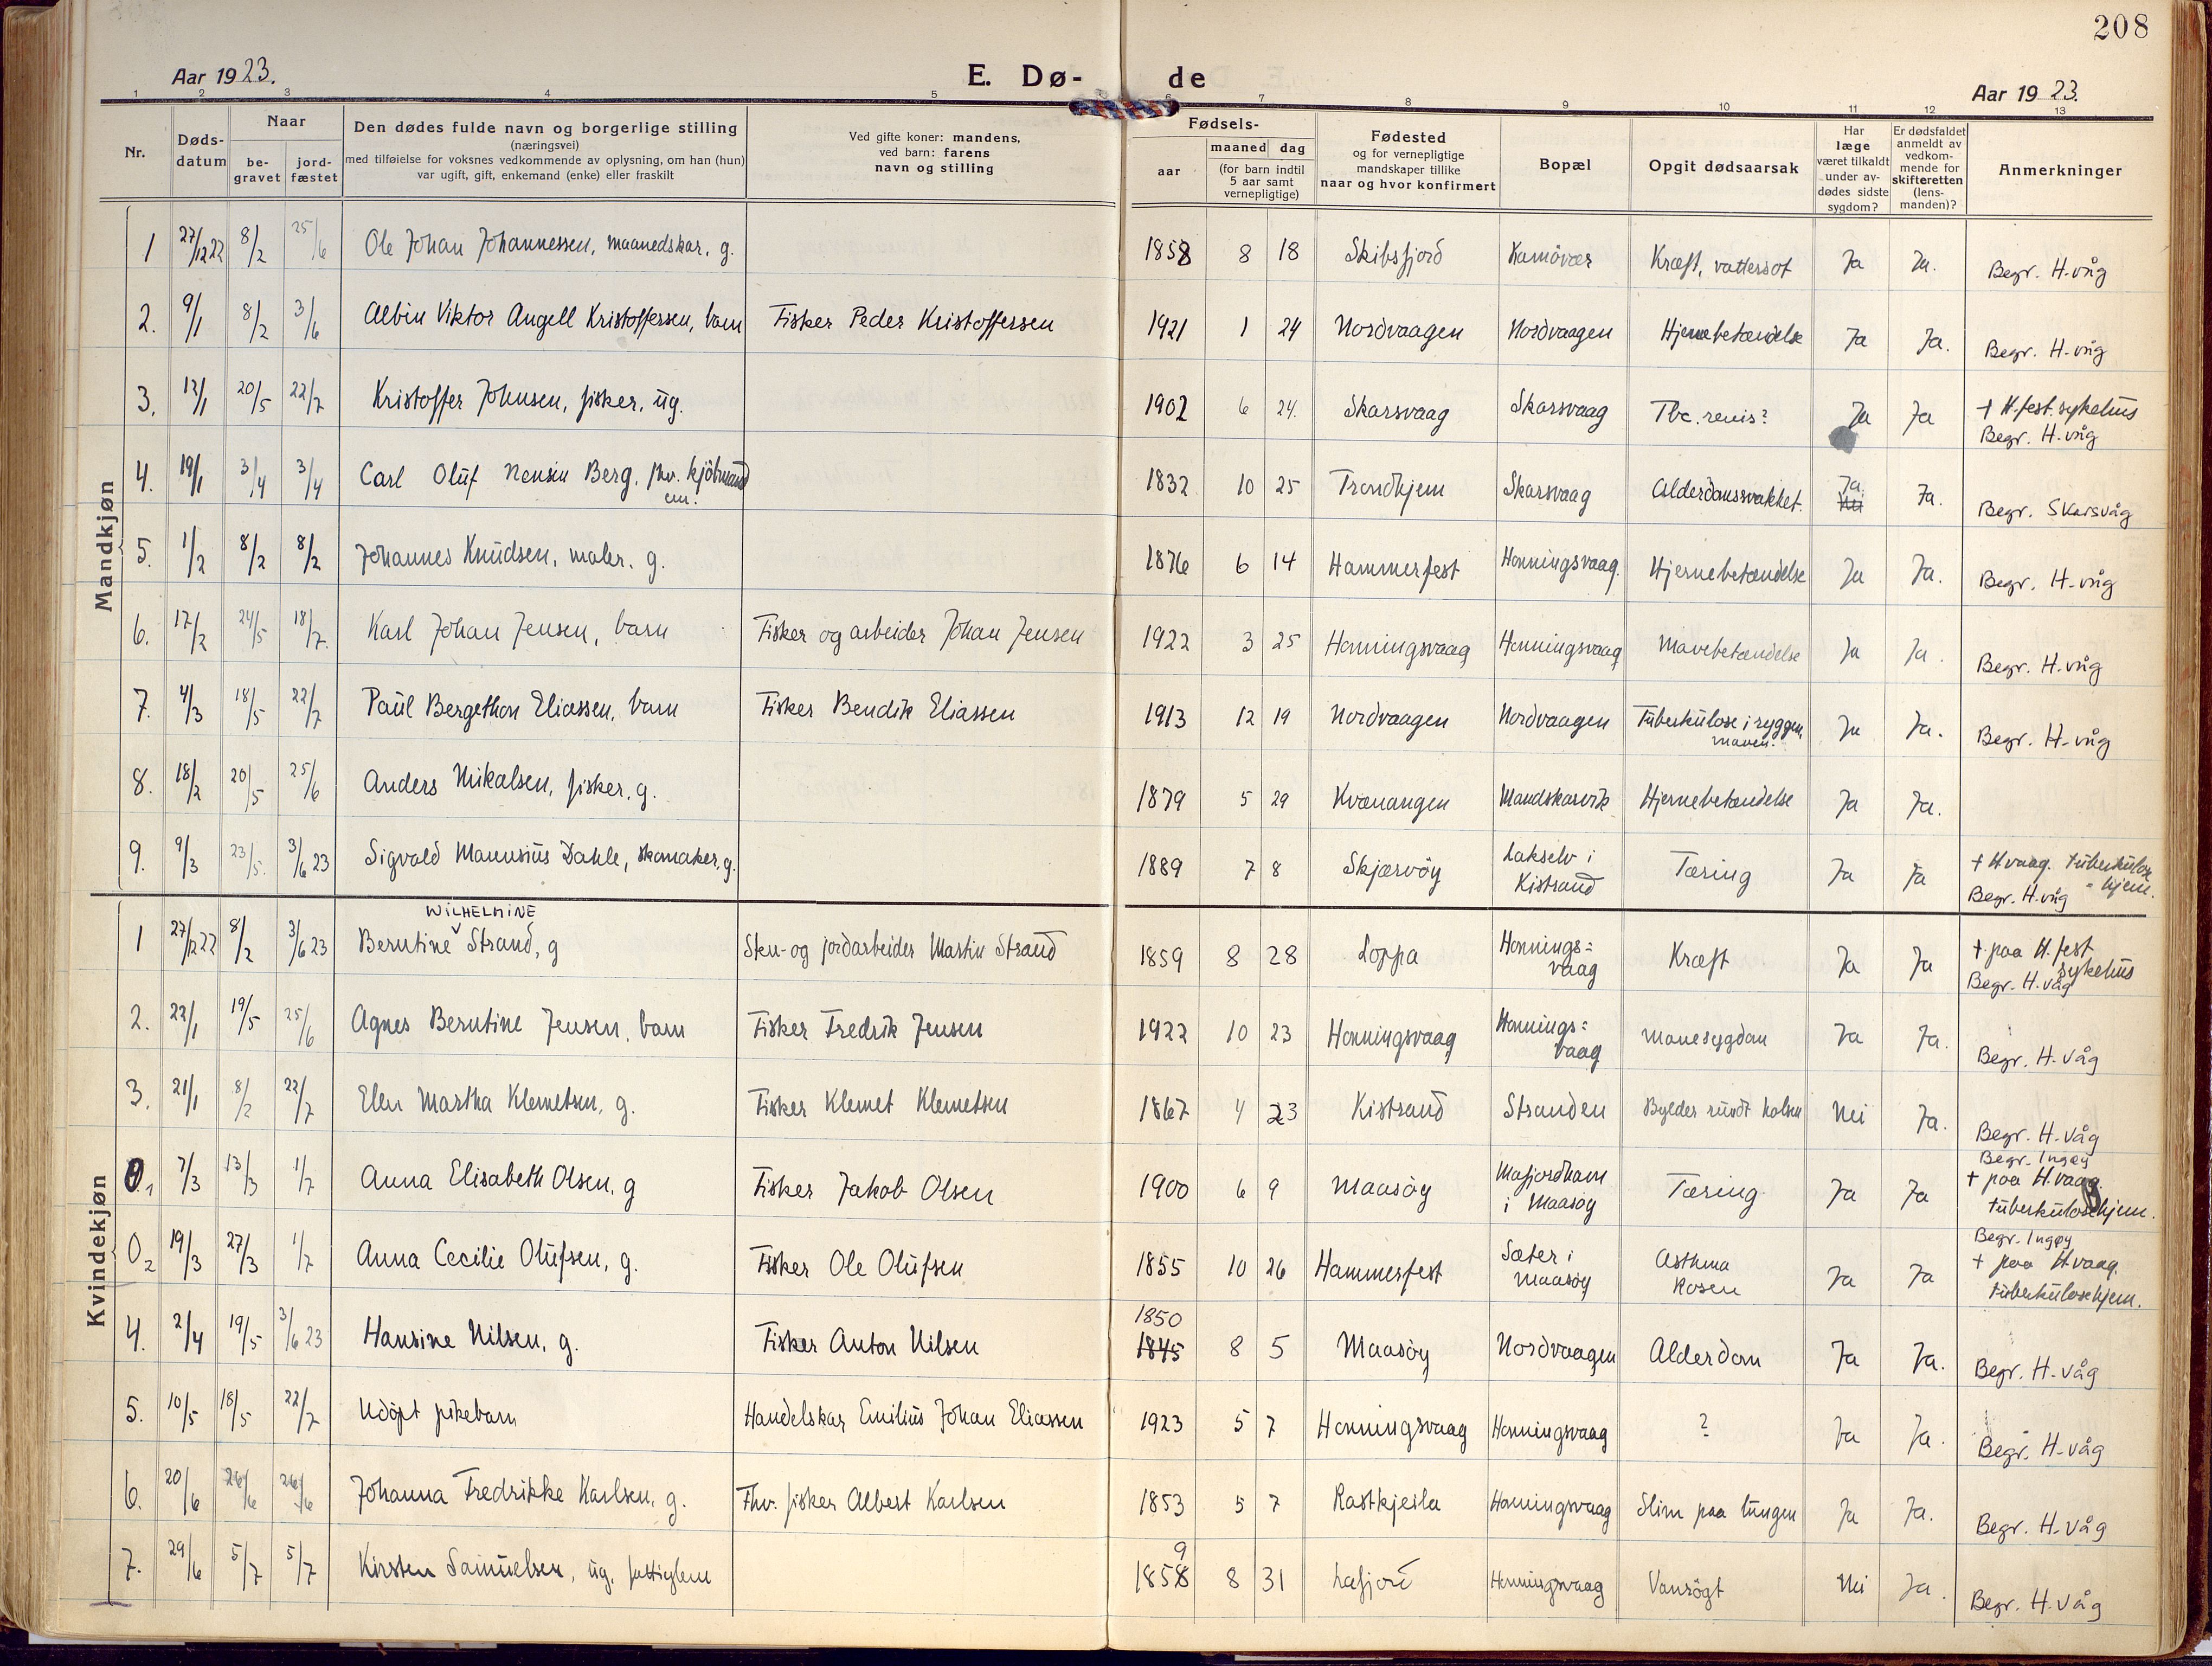 208
Aar 1923.
E. Dø- de
Aar 1923.
1 2 3 4 5 6 7 8 9 10 11 12 13
Nr.
Døds-
datum
Naar
be-
gravet
jord-
fæstet
Den dødes fulde navn og borgerlige stilling
(næringsvei)
med tilføielse for voksnes vedkommende av oplysning, om han (hun)
var ugift, gift, enkemand (enke) eller fraskilt
Ved gifte koner: mandens,
ved barn: farens
navn og stilling
Fødsels-
aar
maaned dag
(for barn indtil
5 aar samt
vernepligtige)
Fødested
og for vernepligtige
mandskaper tillike
naar og hvor konfirmert
Bopæl
Opgit dødsaarsak
Har
læge
været tilkaldt
under av-
dødes sidste
sygdom?
Er dødsfaldet
anmeldt av
vedkom-
mende for
skifteretten
(lens-
manden)?
Anmerkninger
Mandkjøn
1 27/12 22 8/2 25/6 Ole Johan Johannessen, maanedskar, g. 1858 8 18 Skibsfjord Kamøvær Kræft, vattersot Ja Ja. Begr. H.våg
2. 9/1 8/2 3/6 Albin Viktor Angell Kristoffersen, barn Fisker Peder Kristoffersen 1921 1 24 Nordvaagen Nordvaagen Hjernebetændelse Ja Ja. Begr. H-våg
3. 12/1 20/5 22/7 Kristoffer Johnsen, fisker, ug. 1902 6 24. Skarsvaag Skarsvaag Tbc. renis? Ja Ja † H.fest. sykehus
Begr. H-våg
4. 19/1 3/4 3/4 Carl Oluf Nensin Berg, fhv. kjøbmand
em. 1832 10 25 Trondhjem Skarsvaag Alderdomssvakhet. Ja. Nei Ja. Begr. Skarsvåg
5. 1/2 8/2 8/2 Johannes Knudsen, maler. g. 1876 6 14 Hammerfest Honningsvaag. Hjernebetændelse Ja Ja. Begr. H-våg
6. 17/2 24/5 18/7. Karl Johan Jensen, barn Fisker og arbeider Johan Jensen 1922 3 25 Honningsvaag Honningsvaag Mavebetændelse Ja Ja. Begr. H-våg
7. 4/3 18/5 22/7 Paul Bergethon Eliassen, barn Fisker Bendik Eliassen 1913 12 19 Nordvaagen Nordvaagen Tuberkulose i ryggen
maven. Ja Ja. Begr. H-våg
8. 18/2 20/5 25/6 Anders Mikalsen, fisker, g. 1879 5 29 Kvænangen Mandskarvik Hjernebetændelse Ja Ja.
9. 9/3 23/5. 3/6 23 Sigvald Mannsius Dahle, skomaker, g. 1889 7 8 Skjærvøy Lakselv i
Kistrand Tæring Ja Ja † Hvaag. tuberkulose
" hjem.
Begr. H.våg
Kvindekjøn
WILHELMINE
1 27/12 22 8/2 3/6 23 Berntine Strand, g Sten- og jordarbeider Martin Strand 1859 8 28 Loppa Honnings=
vaag Kræft Ja Ja † paa H.fest
sykehus
Begr. H.våg
2. 22/1 19/5 25/6 Agnes Berntine Jensen, barn Fisker Fredrik Jensen 1922 10 23 Honningsvaag Honnings=
vaag Mavesygdom Ja Ja. Begr. H-våg
3. 21/1 8/2 22/7 Elen Martha Klemetsen, g. Fisker Klemet Klemetsen 1867 4 23 Kistrand Stranden Bylder rundt halsen Nei Ja. Begr. H-våg
0.1 7/3 13/3 1/7 Anna Elisabeth Olsen, g Fisker Jakob Olsen 1900 6 9 Maasøy Mafjordhavn
i Maasøy Tæring Ja Ja Begr. Ingøy
† paa H.vaag.
tuberkulosehjem.
0 2 19/3 27/3 1/7 Anna Cecilie Olufsen, g. Fisker Ole Olufsen 1855 10 26 Hammerfest Sæter i
Maasøy Asthma
Rosen Ja Ja Begr. Ingøy
† paa Hvaag.
tuberkulosehjem.
4. 2/4 19/5 3/6 23 Hansine Nilsen, g. Fisker Anton Nilsen 1850
1845 8 5 Maasøy Nordvaagen Alderdom Ja Ja. Begr. H-våg
5. 10/5 18/5 22/7 Udøpt pikebarn Handelskar Emilius Johan Eliassen 1923 5 7 Honningsvaag Honningsvaag ? Ja Ja. Begr. H-våg
6. 20/6 26/6 26/6 Johanna Fredrikke Karlsen, g. Fhv. fisker Albert Karlsen 1853 5 7 Rastkjeila Honningsvaag Slim paa lungen Ja Ja. Begr. H-våg
7. 29/6 5/7 5/7 Kirsten Samuelsen, ug. fattiglem 9
1858 8 31 Lafjord Honningsvaag Vanrøgt Nei Ja. Begr. H-våg